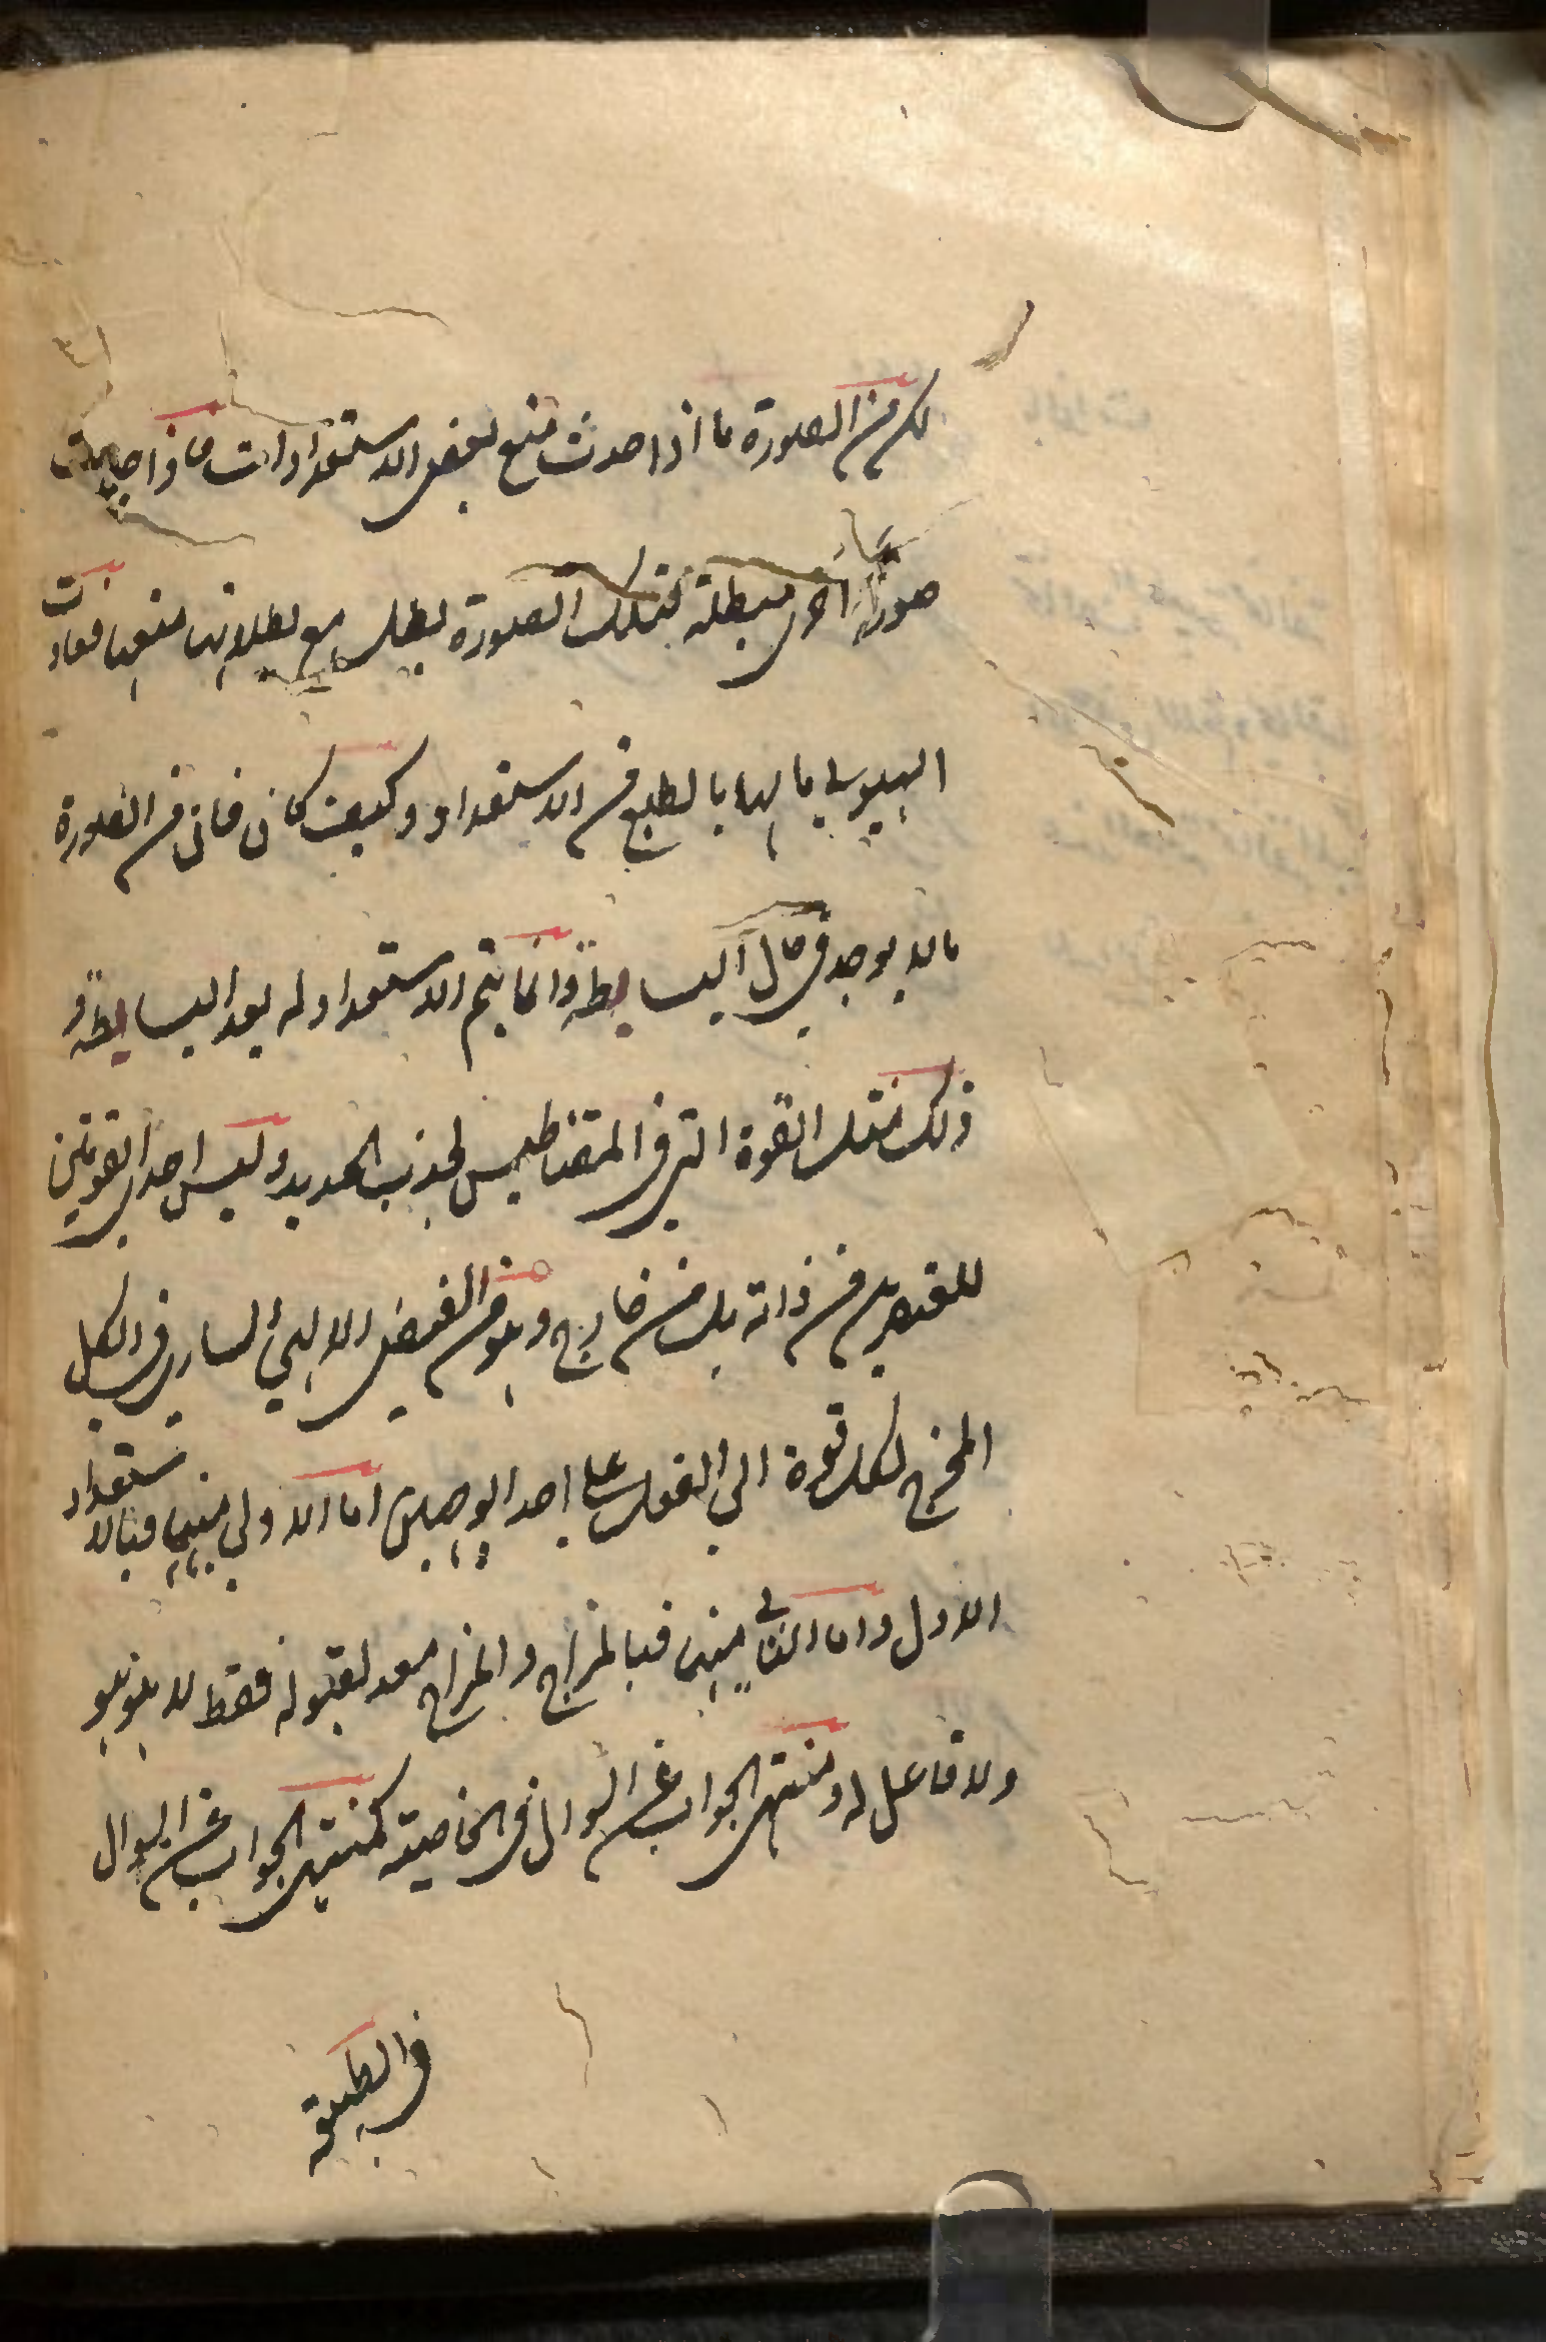 لكن من الصورة ما اذا حدث منع بعض الاستعدادات فاذا حدثت
صورة اخرى مبطلة لتلك الصورة بطل مع بطلانها منعها فعادت
الهيولى ما لها بالطبع من الاستعداد وكيف كان فان من الصورة
ما لا يوجد في حال البساطة وانما يتم الاستعداد له بعد البساطة و
ذلك مثل القوة التي في المقناطيس لجذب الحديد وليس احدى القوتين
للعنصر من ذاته بل من خارج وهو من الفيض الالهي الساري في الكل
المخرج لكل قوة الى الفعل على احد الوجهين اما الاولى منهما فبالاستعداد
الاول واما الثاني منهما فبالمزاج والمزاج معد لقبوله فقط لا هو هو
ولا فاعل له ومنتهى الجواب عن السوال في الخاصية كمنتهى الجواب عن السوال
في الطبيعة